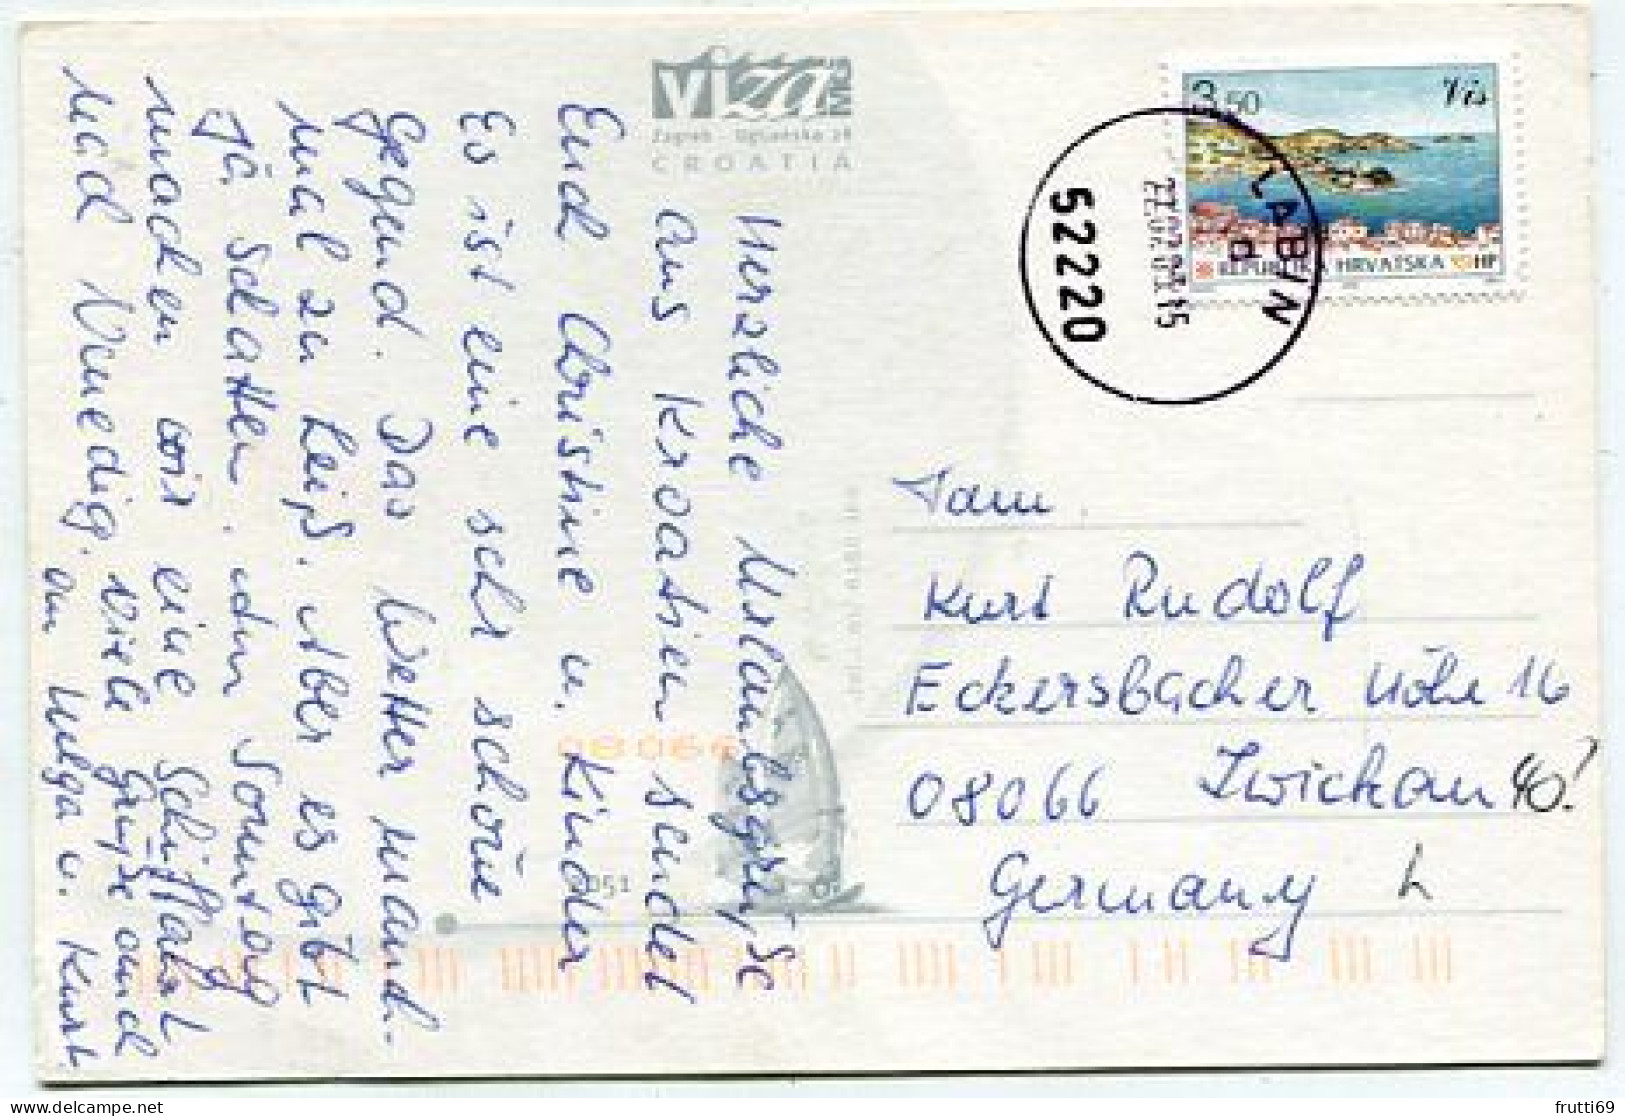 viza
MMG
Zagreb - Ogrizovićeva 28
CROATIA
Herzliche Urlaubsgrüße
aus Kroatien sendet
Euch Christine u. Kinder
Es ist eine sehr schöne
Gegend. Das Wetter manch-
mal zu heiß. Aber es gibt
ja Schatten. Am Sonntag
machen wir eine Schiffahrt
nach Venedig. Viele Grüße auch
an Helga u. Kurt.
3,50
Vis
REPUBLIKA HRVATSKA HP
LABIN
52220
Fam.
Kurt Rudolf
Eckersbacher Höhe 16
08066 Zwickau 40!
Germany
08066
051
frutti69